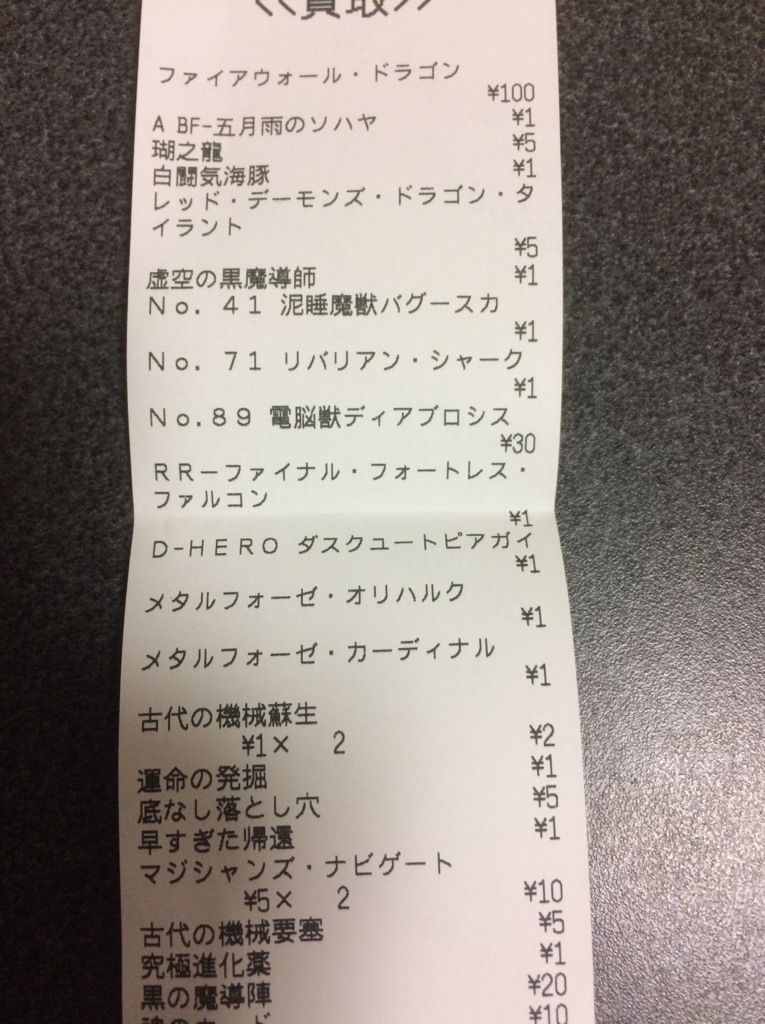 <<買取>>
ファイアウォール・ドラゴン
¥100
A BF-五月雨のソハヤ ¥1
瑚之龍 ¥5
白闘気海豚 ¥1
レッド・デーモンズ・ドラゴン・タ
イラント
¥5
虚空の黒魔導師 ¥1
No. 41 泥睡魔獣バグースカ
¥1
No. 71 リバリアン・シャーク
¥1
No.89 電脳獣ディアブロシス
¥30
RR−ファイナル・フォートレス・
ファルコン
¥1
D-HERO ダスクユートピアガイ
¥1
メタルフォーゼ・オリハルク
¥1
メタルフォーゼ・カーディナル
¥1
古代の機械蘇生
¥1× 2 ¥2
運命の発掘 ¥1
底なし落とし穴 ¥5
早すぎた帰還 ¥1
マジシャンズ・ナビゲート
¥5× 2 ¥10
古代の機械要塞 ¥5
究極進化薬 ¥1
黒の魔導陣 ¥20
¥10